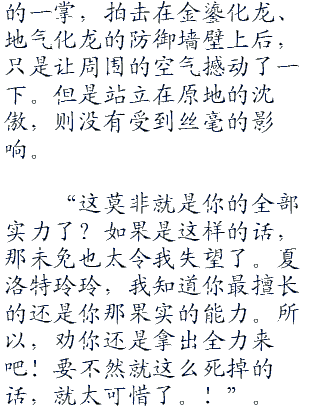 的一掌，拍击在金鎏化龙、
地气化龙的防御墙壁上后，
只是让周围的空气撼动了一
下。但是站立在原地的沈
傲，则没有受到丝毫的影
响。
“这莫非就是你的全部
实力了？如果是这样的话，
那未免也太令我失望了。夏
洛特玲玲，我知道你最擅长
的还是你那果实的能力。所
以，劝你还是拿出全力来
吧！要不然就这么死掉的
话，就太可惜了。！”。